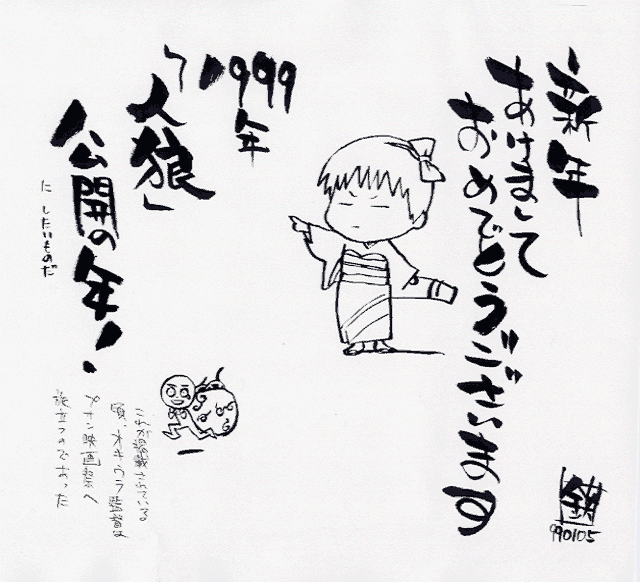 新年
あけまして
おめでとうございます
1999年
「人狼」
公開の年!
にしたいものだ
これが掲載されている
頃、監督は
映画祭へ
旅立つのであった
990105